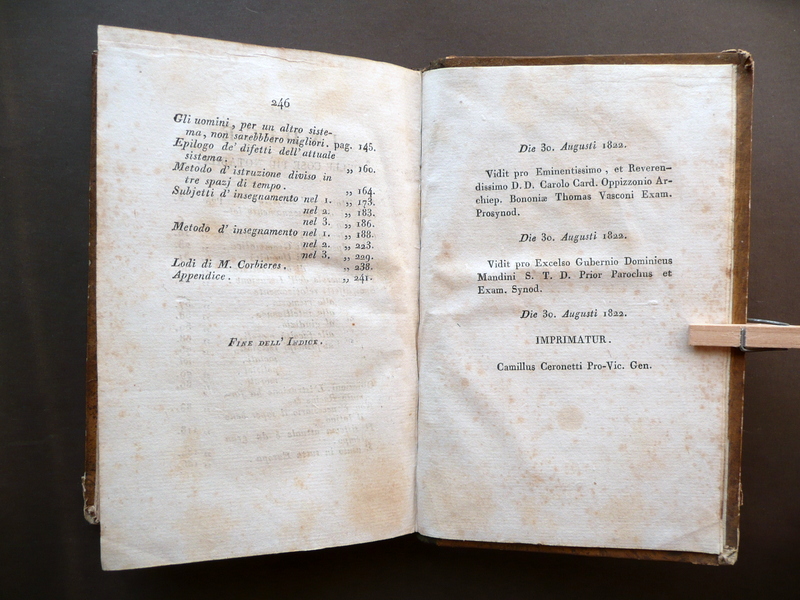 246
Gli uomini, per un altro siste-
ma, non sarebbbero migliori. pag. 145.
Epilogo de' difetti dell' attuale
sistema. ,, 160.
Metodo d' istruzione diviso in
tre spazj di tempo. ,, 164.
Subjetti d' insegnamento nel 1. ,, 173.
nel 2. ,, 183.
nel 3. ,, 186.
Metodo d' insegnamento nel 1. ,, 188.
nel 2. ,, 223.
nel 3. ,, 229.
Lodi di M. Corbieres. ,, 238.
Appendice. ,, 241.
FINE DELL' INDICE.
Die 30. Augusti 1822.
Vidit pro Eminentissimo, et Reveren-
dissimo D. D. Carolo Card. Oppizzonio Ar-
chiep. Bononiæ Thomas Vasconi Exam.
Prosynod.
Die 30. Augusti 1822.
Vidit pro Excelso Gubernio Dominicus
Mandini S. T. D. Prior Parochus et
Exam. Synod.
Die 30. Augusti 1822.
IMPRIMATUR.
Camillus Ceronetti Pro-Vic. Gen.